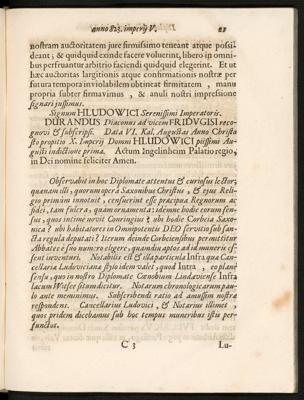 anno 823. imperij V. 21
nostram auctoritatem jure firmissimo teneant atque possi-
deant; & quidquid exinde facere voluerint, libero in omni-
bus perfruantur arbitrio faciendi quidquid elegerint. Et ut
hæc auctoritas largitionis atque confirmationis nostræ per
futura tempora inviolabilem obtineat firmitatem, manu
propria subter firmavimus, & anuli nostri impressione
signari jussimus.
Signum HLUDOWICI Serenissimi Imperatoris.
DURANDUS Diaconus ad vicem FRIDVGISI reco-
gnovi & subscripsi. Data VI. Kal. Augustas Anno Christo
propitio X. Imperij Domni HLUDOWICI piissimi Au-
gusti indictione prima. Actum Ingelinheim Palatio regio,
in Dei nomine feliciter Amen.
Observabit in hoc Diplomate attentus & curiosus lector;
quanam illi, quorum opera Saxonibus Christus, & ejus Reli-
gio primum innotuit, censuerint esse præcipua Regnorum ac
fidei, tam fulcra, quam ornamenta: idemne hodie eorum sen-
sus, quos intime novit Couringius? ubi hodie Corbeia Saxo-
nica? ubi habitatores in Omnipotentis DEO servitio sub san-
cta regula deputati? Iterum deinde Corbeiensibus permittitur
Abbates è suo numero elegere, quandiu aptos ad id munere es-
sent inventuri. Notabilis est & illa particula Infra qua Can-
cellaria Ludoviciana istis idem valet, quod Intra, eo plane
sensu, quo in nostro Diplomate Cœnobium Lindaviense Infra
lacum Witsee situm dicitur. Notarum chronologicarum pau-
lo ante meminimus. Subscribendi ratio ad amussim nostræ
respondens. Cancellarius Ludovici, & Notarius illimet,
quos pridem dicebamus sub hoc tempus muneribus istis per-
functos.
C 3 Lu-